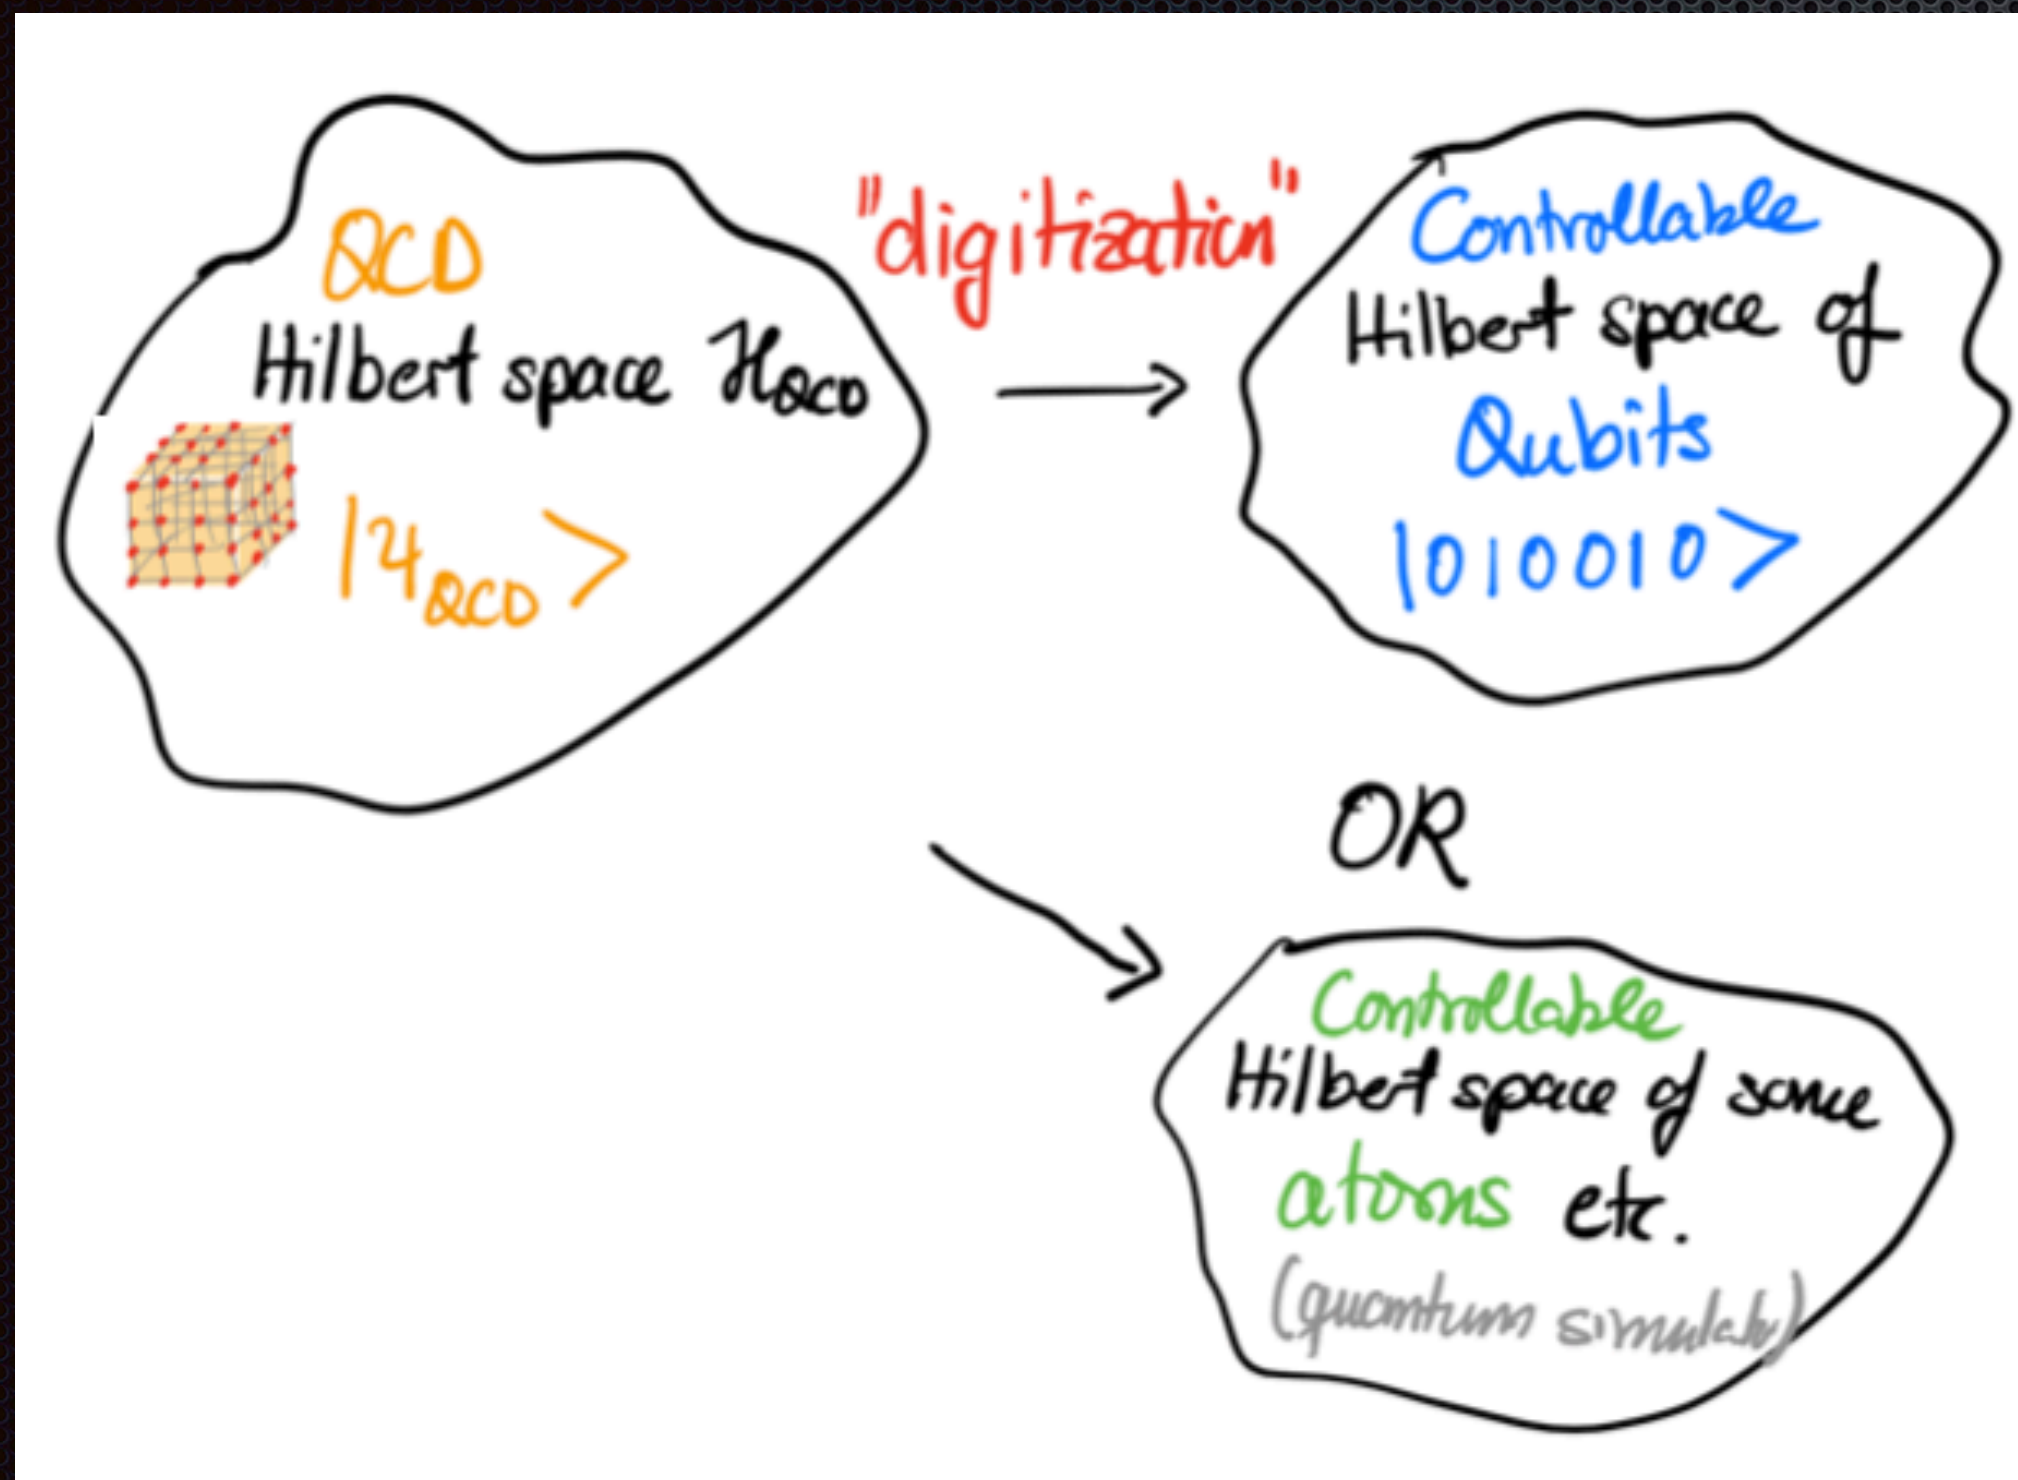 QCD
Hilbert space ℋQCD
|ψQCD>
"digitization"
Controllable
Hilbert space of
Qubits
|010010>
OR
Controllable
Hilbert space of some
atoms etc.
(quantum simulator)